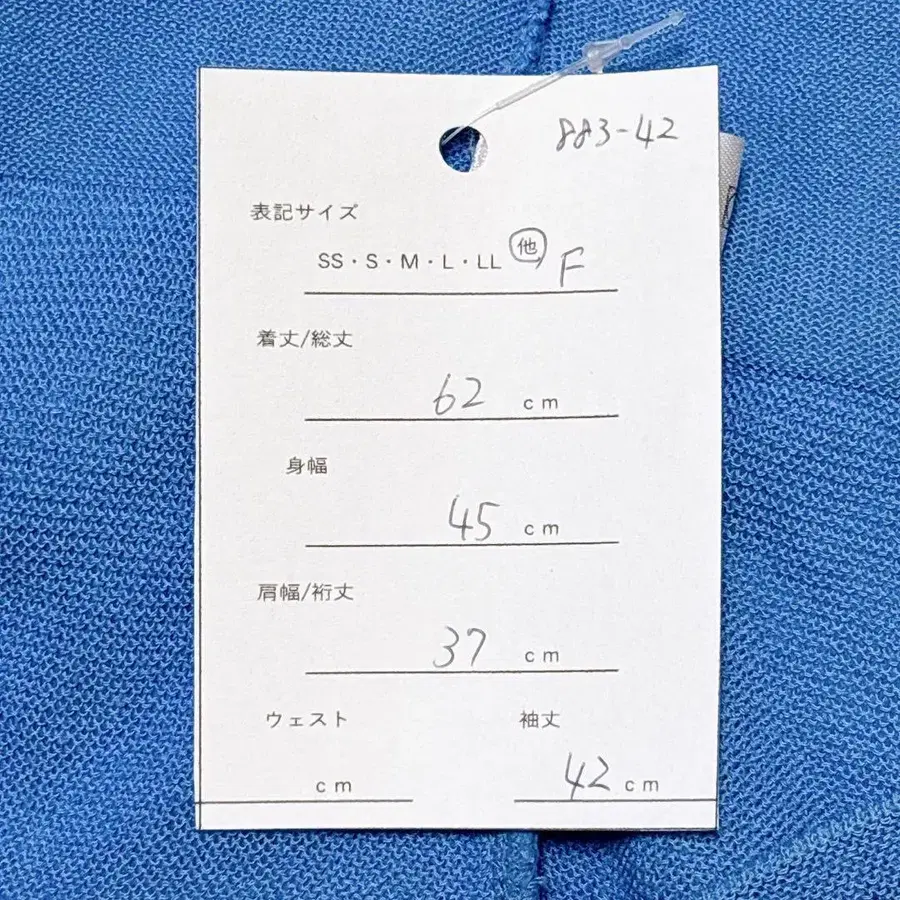 883-42
表記サイズ
SS・S・M・L・LL 他 F
着丈/総丈
62 cm
身幅
45 cm
肩幅/裄丈
37 cm
ウェスト 袖丈
cm 42 cm